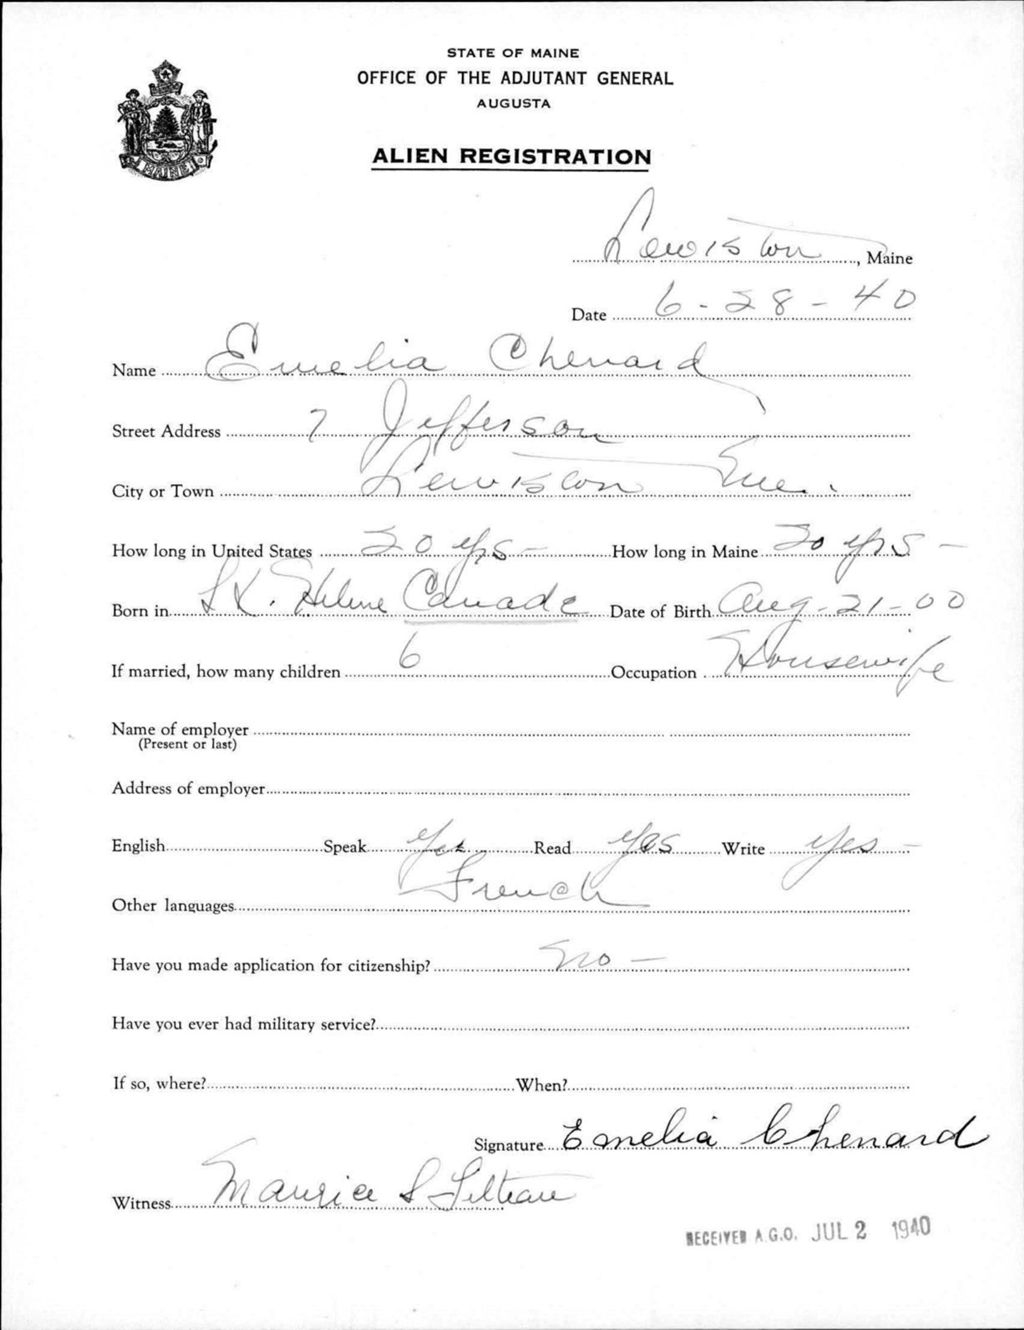 STATE OF MAINE
OFFICE OF THE ADJUTANT GENERAL
AUGUSTA
ALIEN REGISTRATION
MAINE
Lewiston, Maine
Date 6-28-40
Name Emelia Chenard
Street Address 7 Jefferson
City or Town Lewiston Me.
How long in United States 20 yrs - How long in Maine 20 yrs -
Born in St. Helene Canada Date of Birth Aug-21-00
If married, how many children 6 Occupation Housewife
Name of employer
(Present or last)
Address of employer
English Speak Yes Read Yes Write Yes -
Other languages French
Have you made application for citizenship? No -
Have you ever had military service?
If so, where? When?
Signature Emelia Chenard
Witness Maurice S
RECEIVED A.G.O. JUL 2 1940